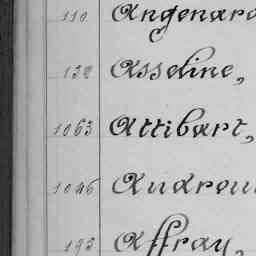 110 Angenard
132 Asseline,
1063 Attibart,
1046 Androu
193 Affray,